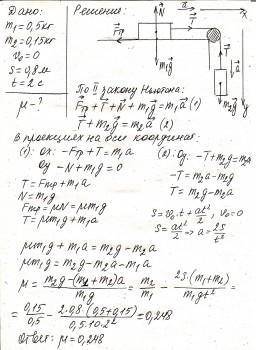 Дано:
Решение:
m₁=0,5кг
m₂=0,15кг
v₀=0
S=0,8м
t=2c
μ-?
По II закону Ньютона:
F⃗тр+T⃗+N⃗+m₁g⃗=m₁a⃗ (1)
T⃗+m₂g⃗=m₂a⃗ (2)
В проекциях на оси координат:
(1): Ox: -Fтр+T=m₁a
Oy -N+m₁g=0
T=Fтр+m₁a
N=m₁g
Fтр=μN=μm₁g
T=μm₁g+m₁a
(2): Oy: -T+m₂g=m₂a
-T=m₂a-m₂g
T=m₂g-m₂a
S=v₀t+at²/2, v₀=0
S=at²/2 → a=2S/t²
μm₁g+m₁a=m₂g-m₂a
μm₁g=m₂g-m₂a-m₁a
μ=(m₂g-(m₁+m₂)a)/(m₁g)=m₂/m₁-2S·(m₁+m₂)/(m₁gt²)=
=0,15/0,5-2·0,8·(0,5+0,15)/(0,5·10·2²)=0,248
Ответ: μ=0,248